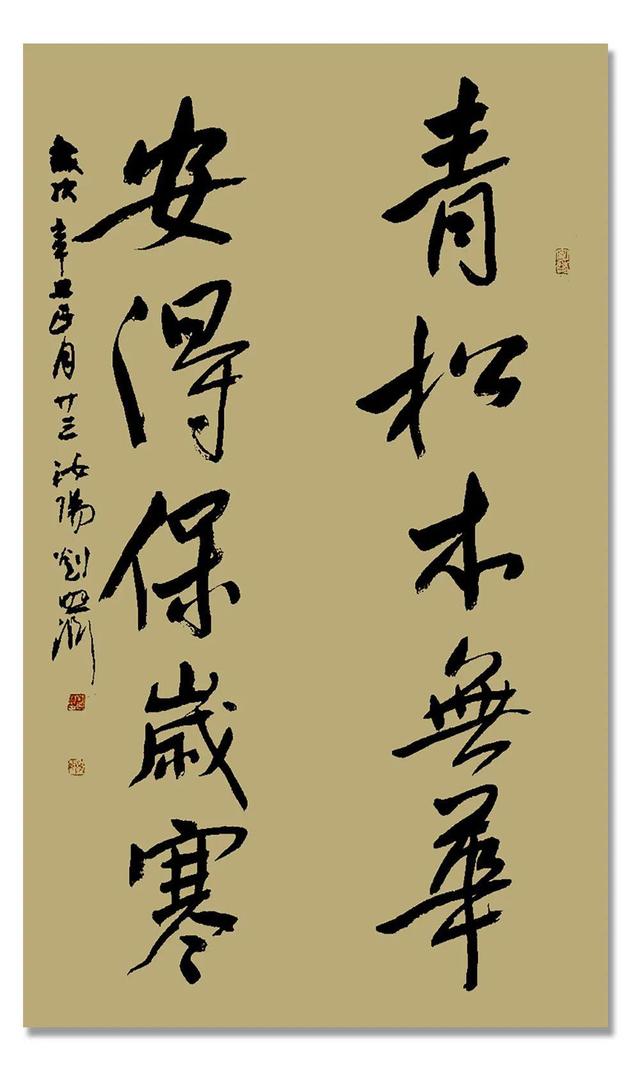 青松本無華
安得保歲寒
歲次辛丑正月廿三汝陽劉